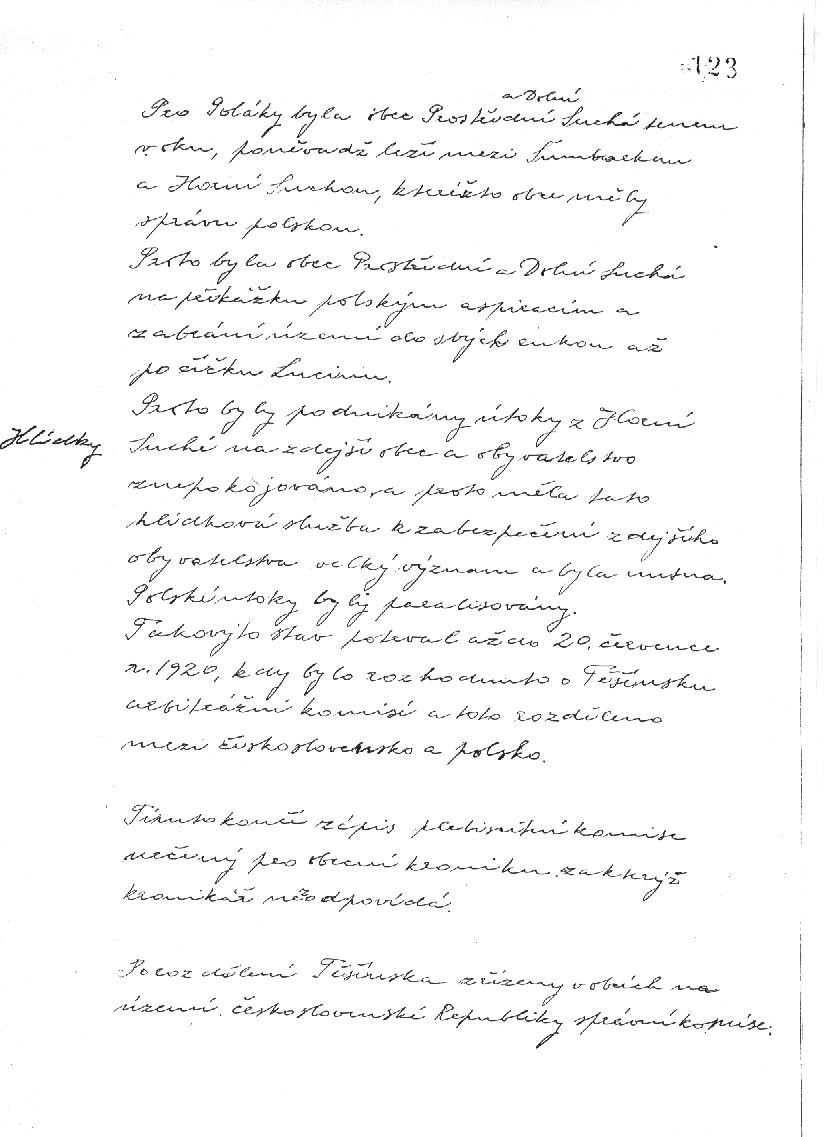 123
a Dolní
Pro Poláky byla obec Prostřední Suchá trnem
v oku, poněvadž leží mezi Šumbarkem
a Horní Suchou, kterížto obce měly
správu polskou.
Proto byla obec Prostřední a Dolní Suchá
na překážku polským aspiracím a
zabrání území do svých rukou až
po říčku Lucinu.
Proto byly podnikány útoky z Horní
Hlídky
Suché na zdejší obec a obyvatelstvo
znepokojováno, a proto měla tato
hlídková služba k zabezpečení zdejšího
obyvatelstva velký význam a byla nutna.
Polské útoky byly paralisovány.
Takovýto stav potrval až do 20. července
r. 1920, kdy bylo rozhodnuto o Těšínsku
arbitrážní komisí a toto rozděleno
mezi Československo a polsko.
Tímto končí zápis plebiscitní komise
určený pro obecní kroniku, za který ž
kronikář nezodpovídá.
Po rozdělení Těšínska zřízeny v obcích na
území československé Republiky správní komise.